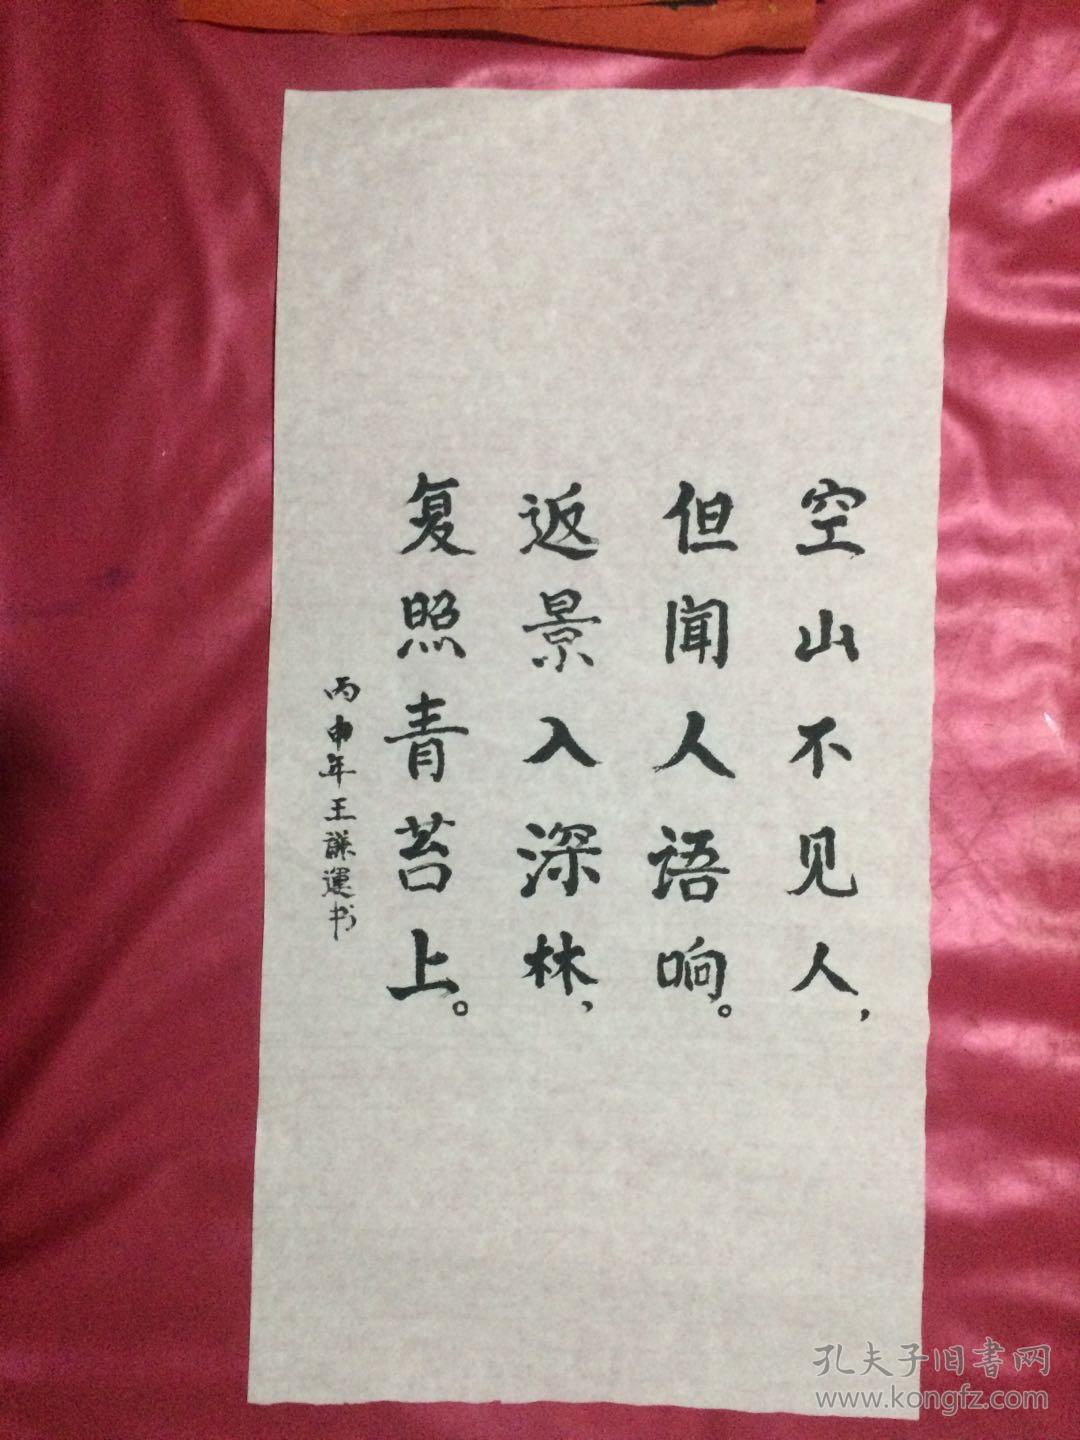 空山不见人，
但闻人语响。
返景入深林，
复照青苔上。
丙申年王謙運书
孔夫子旧書网
www.kongfz.com